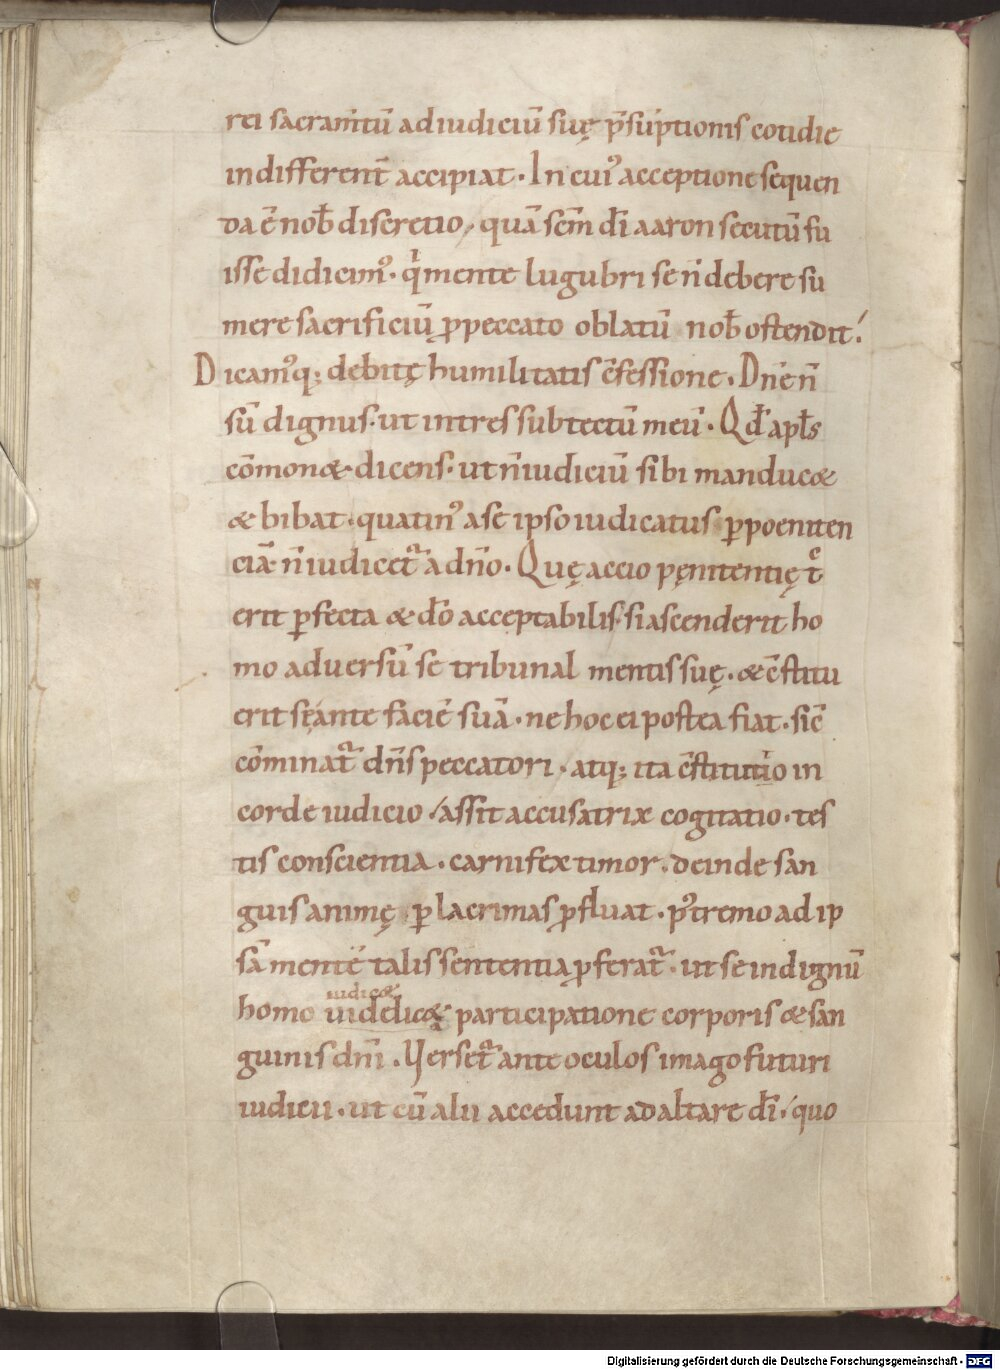 rei sacram̅tū ad iudiciū suę p̄sūptionis cotidie
indifferent̄ accipiat · In cui᾽ acceptione sequen
da ē nob̄ discretio · quā sc̄m dī aaron secutū fu
isse didicim᾽ · q mente lugubri se n̄ debere su
mere sacrificiū ꝓ peccato oblatū nob̄ ostendit ·
Dicam᾽ q; debitę humilitatis c̄fessione · Dn̄e n̄
sū dignus · ut intres sub tectū meū · Qđ apl̄s
cōmon& · dicens · ut n̄ iudiciū sibi manduc&
& bibat · quatin᾽ a se ipso iudicatus ꝑ poeniten
ciā n̄ iudicet᷑ a dn̄o · Quę accio pęnitentię t̄c
erit ꝑfecta & dō acceptabilis · si ascenderit ho
mo adversū se tribunal mentis suę · & c̄stitu
erit se ante faciē suā · ne hoc ei postea fiat · sic̄
cōminat᷑ dn̄s peccatori · atq; ita c̄stituto in
corde iudicio · assit accusatrix cogitatio · tes
tis conscientia · carnifex timor · deinde san
guis animę ꝑ lacrimas ꝓfluat · p᾽tremo ad ip
sā mente talis sententia ꝓferat᷑ · ut se indignū
iudic&
homo uidelic& participatione corporis & san
guinis dn̄i · Verset᷑ ante oculos imago futuri
iudicii · ut cū alii accedunt ad altare dī · quo
Digitalisierung gefördert durch die Deutsche Forschungsgemeinschaft - DFG